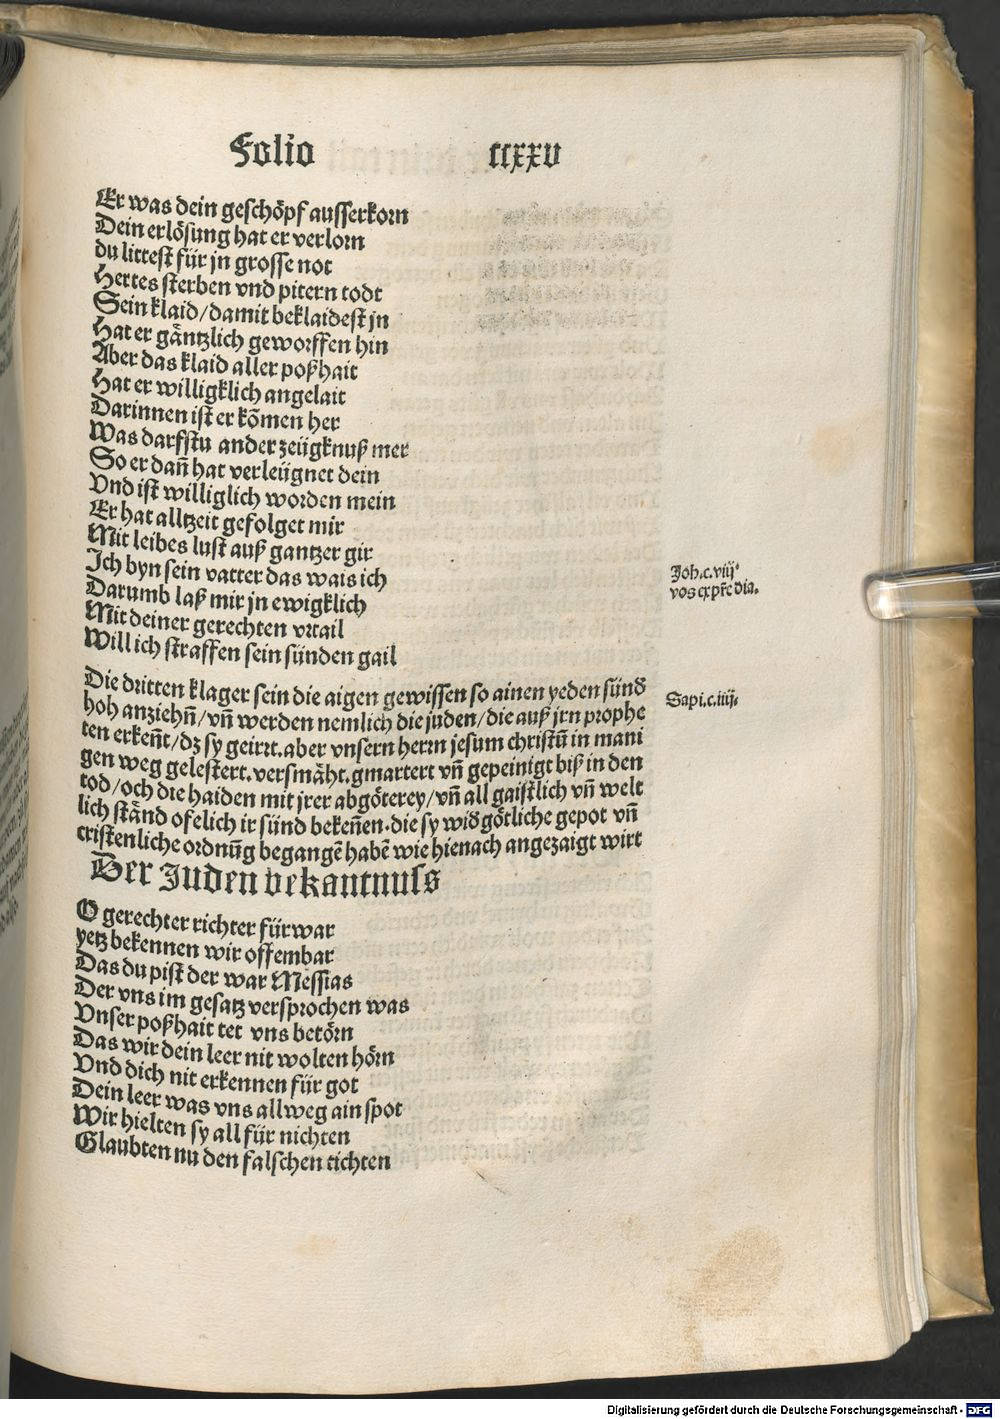 Folio ccxxv
Er was dein geschöpf ausserkorn
Dein erlösung hat er verlorn
du littest für jn grosse not
Hertes sterben vnd pitern todt
Sein klaid/damit beklaidest jn
Hat er gäntzlich geworffen hin
Aber das klaid aller poßhait
Hat er willigklich angelait
Darinnen ist er kōmen her
Was darfstu ander zeügknuß mer
So er dañ hat verleügnet dein
Vnd ist williglich worden mein
Er hat alltzeit gefolget mir
Mit leibes lust auß gantzer gir
Ich byn sein vatter das wais ich
Darumb laß mir jn ewigklich
Mit deiner gerechten vrtail
Will ich straffen sein sünden gail
Joh.c.viij.
vos ex pr̃e dia.
Die dritten klager sein die aigen gewissen so ainen yeden sünd
hoh anziehñ/vñ werden nemlich die juden/die auß jrn prophe
ten erkeñt/dz sy geirrt.aber vnsern herrn jesum christū in mani
gen weg gelestert.versmäht.gmartert vñ gepeinigt biß in den
tod/och die haiden mit jrer abgöterey/vñ all gaistlich vñ welt
lich ständ ofelich ir sünd bekeñen.die sy wid götliche gepot vñ
cristenliche ordnūg begangē habē wie hienach angezaigt wirt
Sapi.c.iiij.
Der Juden bekantnuss
O gerechter richter fürwar
yetz bekennen wir offembar
Das du pist der war Messias
Der vns im gesatz versprochen was
Vnser poßhait tet vns betörn
Das wir dein leer nit wolten hörn
Vnd dich nit erkennen für got
Dein leer was vns allweg ain spot
Wir hielten sy all für nichten
Glaubten nu den falschen tichten
Digitalisierung gefördert durch die Deutsche Forschungsgemeinschaft - DFG